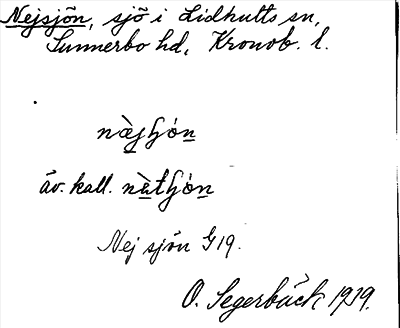 Nejsjön, sjö i Lidhults sn,
Sunnerbo hd, Kronob. l.
näjʃjön
äv. kall. nätʃjön
Nej sjön G19.
O. Segerbäck 1919.